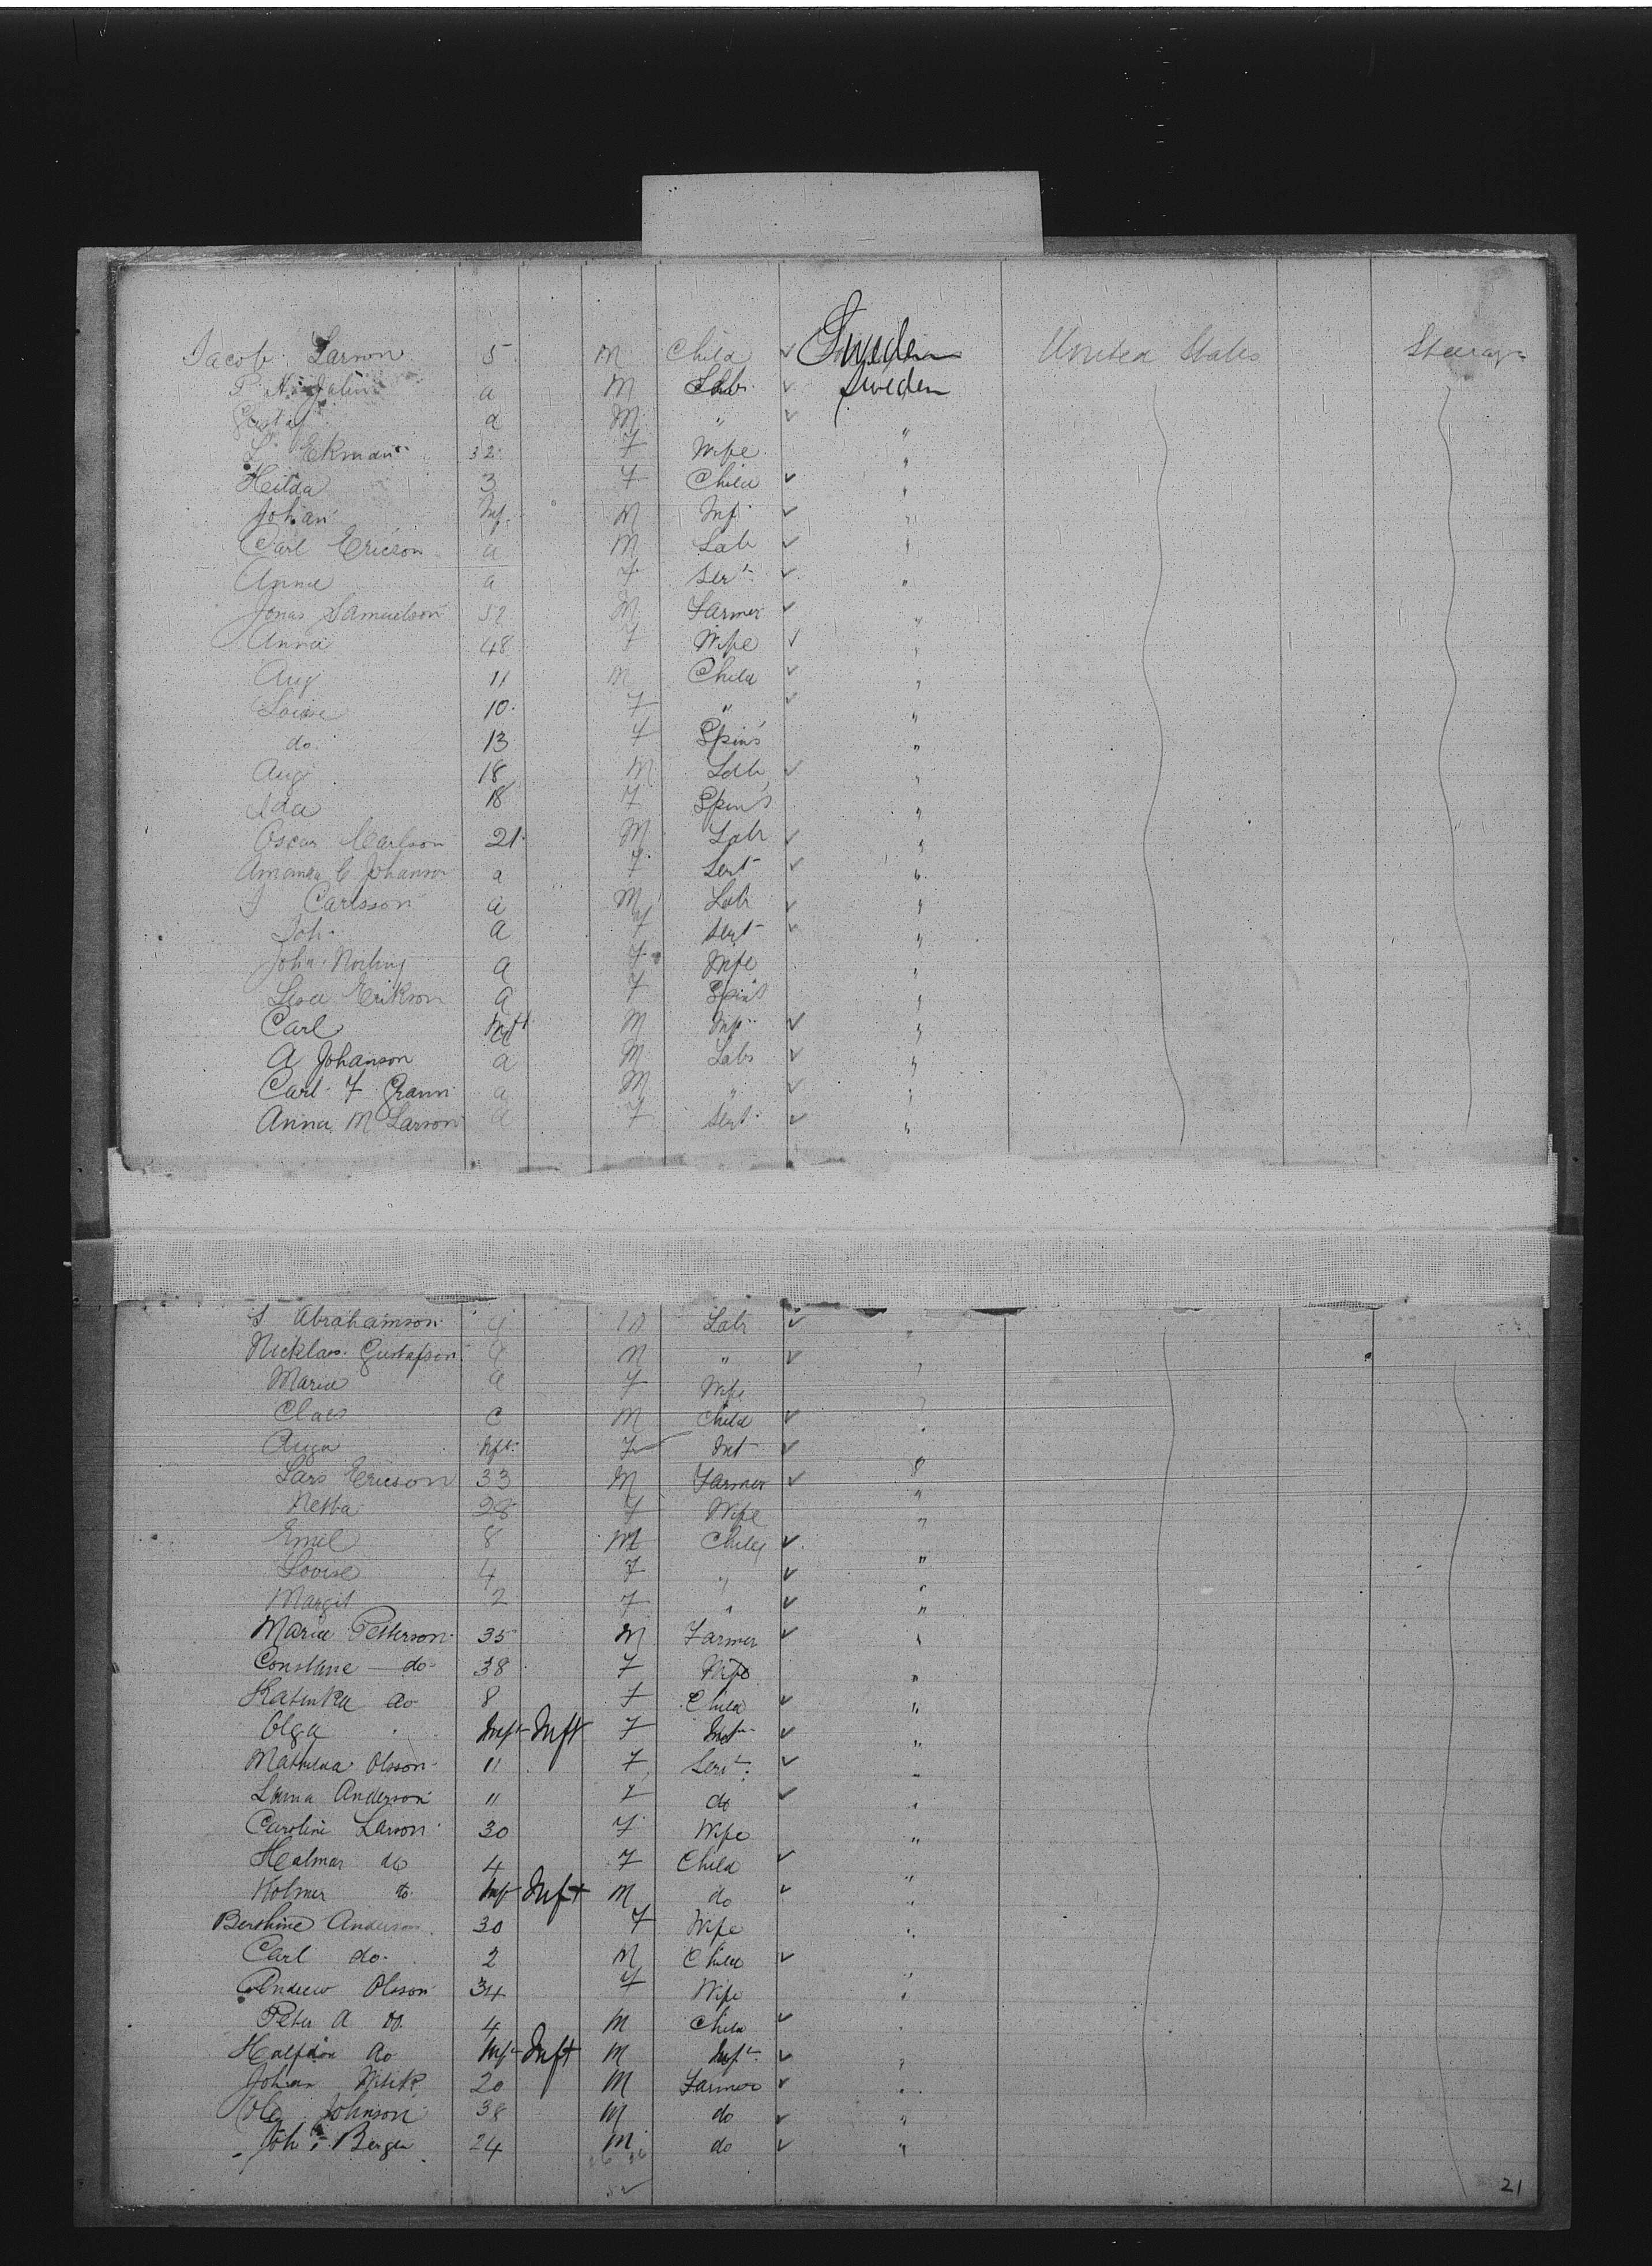 Jacob Larson 5 M Child ✓ Sweden United States Steerage
P. A. Jalin a M Lab. ✓ Sweden
Gustaf a M " ✓ "
L Ekman 32 F Wife "
Hilda 3 F Child ✓ "
Johan Inf. M Inf. ✓ "
Carl Ericson a M Lab ✓ "
Anna a F Sert. ✓ "
Jonas Samuelson 52 M Farmer ✓ "
Anna 48 F Wife ✓ "
Aug 11 M Child ✓ "
Louise 10 F " ✓ "
do 13 F Spins "
Aug 18 M Lab ✓ "
Ida 18 F Spins "
Oscar Carlson 21 M Labr ✓ "
Amanda C Johanson a F Sert ✓ "
J Carlsson a M Lab ✓ "
Joh. a F Sert ✓ "
John Norling a F Wife "
Lisa Erikson a F Spins "
Carl Inft M Inf. ✓ "
A Johanson a M Labr ✓ "
Carl F. Grann a M " ✓ "
Anna M Larson a F Sert. ✓ "
S Abrahamson a M Labr ✓ "
Nicklas Gustafson a M " ✓ "
Maria a F Wife "
Claes C M Child ✓ "
Inft. F Inft ✓ "
Lars Ericson 33 M Farmer ✓ "
Netta 28 F Wife "
Emil 8 M Child ✓ "
Lovise 4 F " ✓ "
Margit 2 F " ✓ "
Maria Petterson 35 M Farmer ✓ "
Constine do 38 F Wife "
Katinka do 8 F Child ✓ "
Olga Inft Inft F Inft ✓ "
Mathilda Olsson 11 F Sert. ✓ "
Anderson 11 F do ✓ "
Caroline Larson 30 F Wife "
Halmar do 4 F Child ✓ "
Holmer do Inft Inft M do ✓ "
Berthine Anderson 30 F Wife "
Carl do. 2 M Child ✓
Andrew Olsson 34 F Wife "
Peter A do. 4 M Child ✓ "
Halfdan do Inft Inft M Inft. ✓ "
Johan 20 M Farmer ✓ "
Ole Johnson 38 M do ✓ "
Joh. Bergen 24 M do ✓ "
21